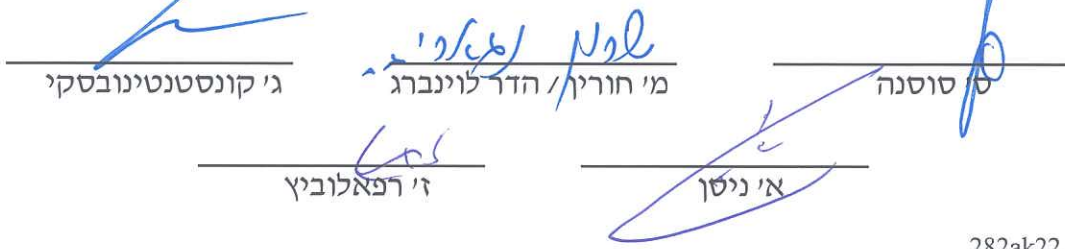 ס' סוסנה מ' חורין / הדר לוינברג ג' קונסטנטינובסקי
א' ניסן ז' רפאלוביץ
282ak22